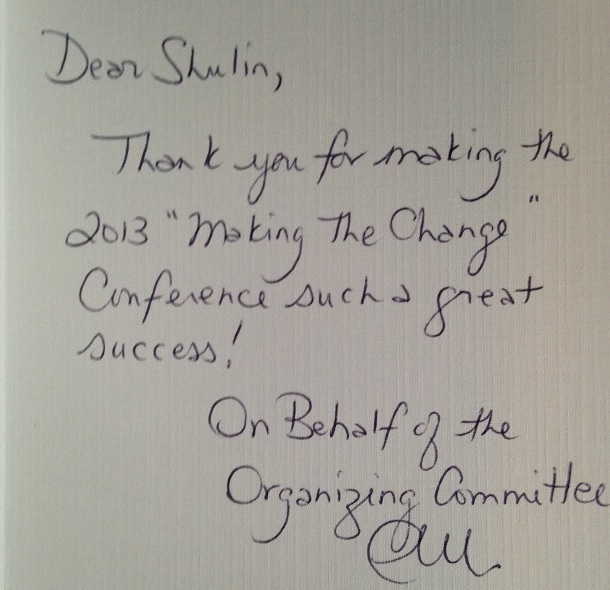 Dear Shulin,
Thank you for making the
2013 "Making The Change"
Conference such a great
success!
On Behalf of the
Organizing Committee